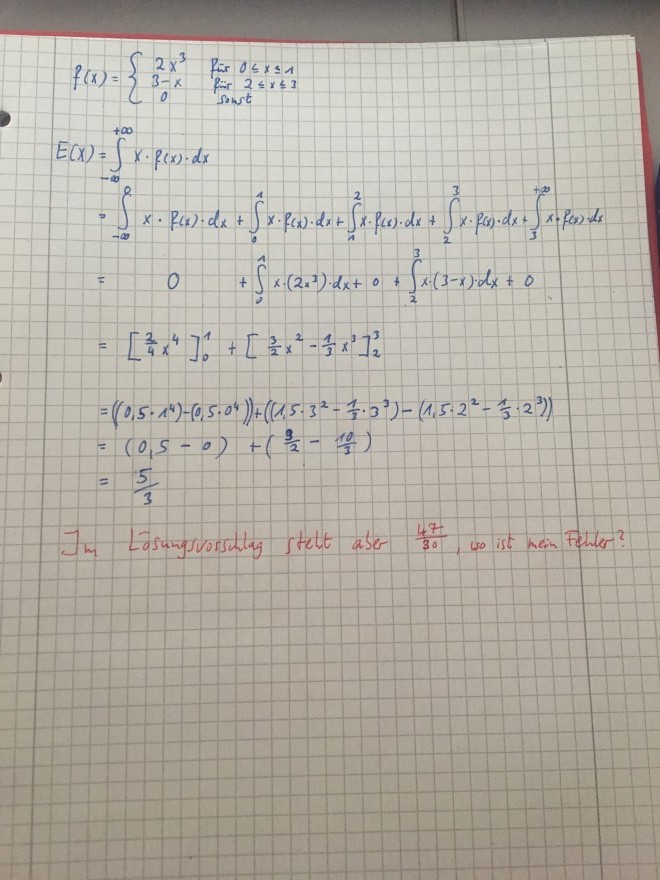 f(x) = { 2x³ für 0 ≤ x ≤ 1
3-x für 2 ≤ x ≤ 3
0 sonst
E(X) = ∫_{-∞}^{+∞} x · f(x) · dx
= ∫_{-∞}^{0} x · f(x) · dx + ∫_{0}^{1} x · f(x) · dx + ∫_{1}^{2} x · f(x) · dx + ∫_{2}^{3} x · f(x) · dx + ∫_{3}^{+∞} x · f(x) · dx
= 0 + ∫_{0}^{1} x · (2x³) · dx + 0 + ∫_{2}^{3} x · (3-x) · dx + 0
= [2/4 x⁴]_{0}^{1} + [3/2 x² - 1/3 x³]_{2}^{3}
= ((0,5 · 1⁴) - (0,5 · 0⁴)) + ((1,5 · 3² - 1/3 · 3³) - (1,5 · 2² - 1/3 · 2³))
= (0,5 - 0) + (9/2 - 10/3)
= 5/3
Im Lösungsvorschlag steht aber 47/30, wo ist mein Fehler?